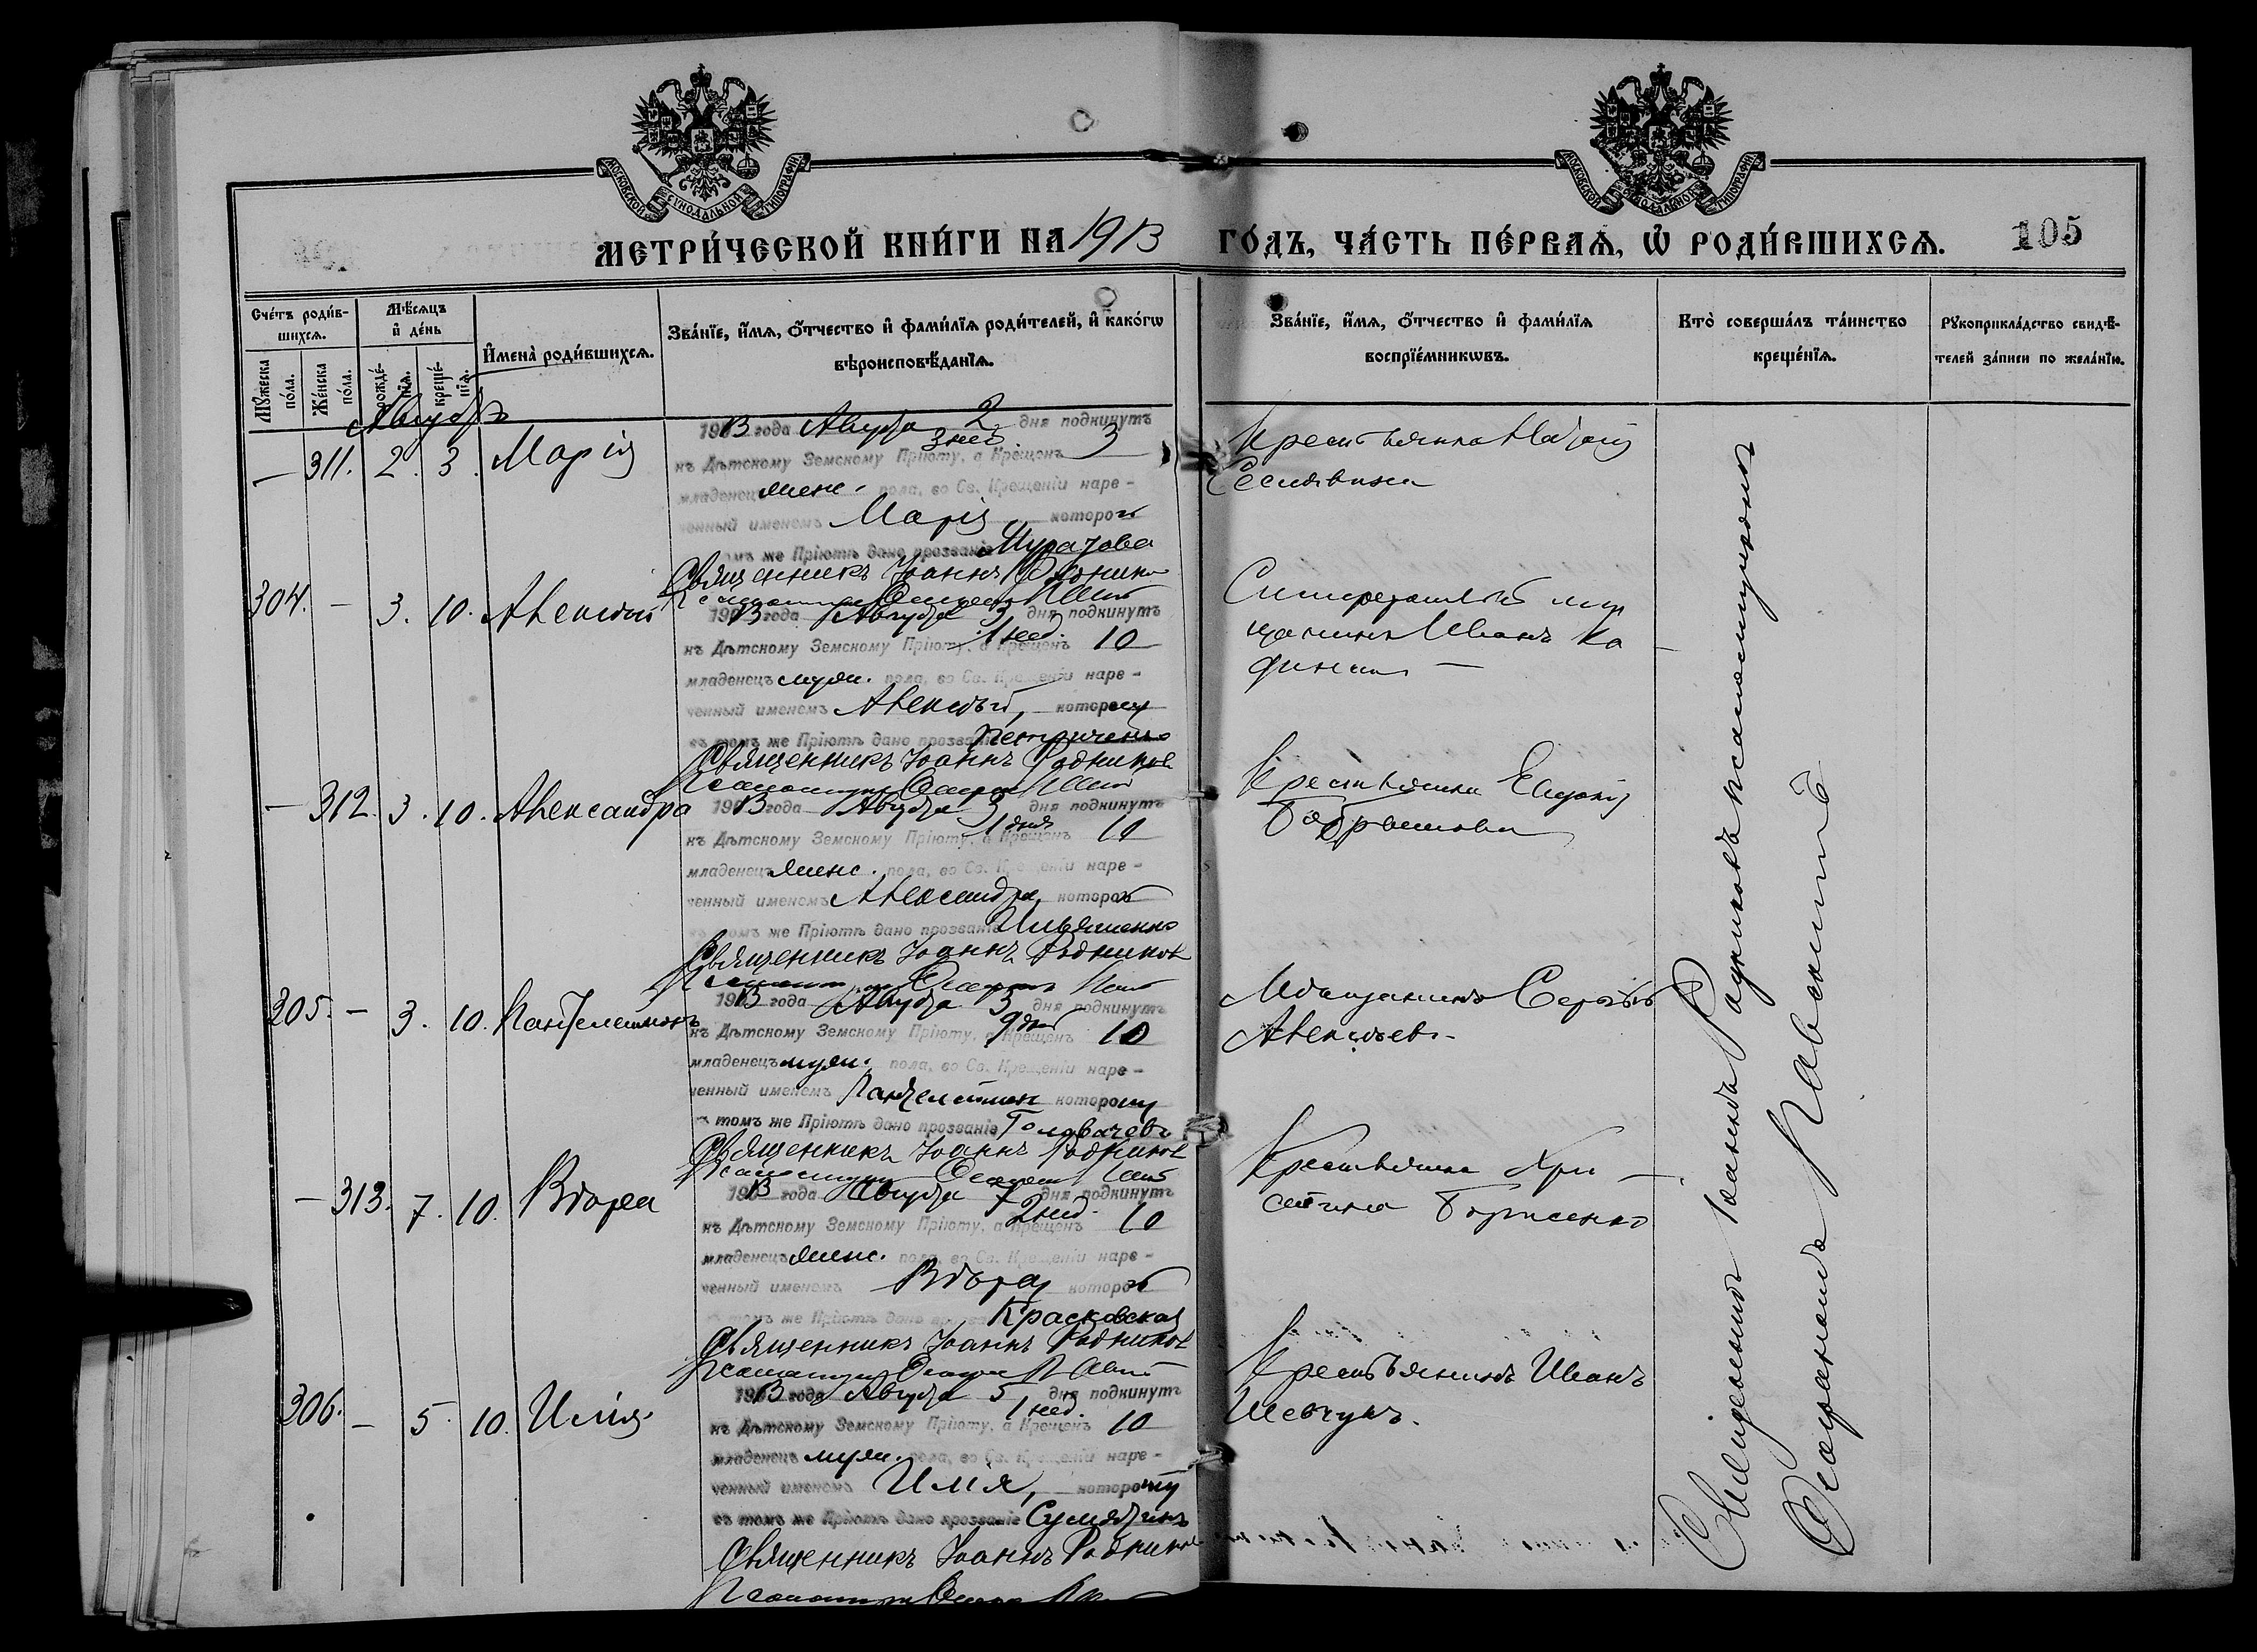 МОСКОВСКОЙ СУНОДАЛЬНОЙ ТИПОГРАФІИ
МОСКОВСКОЙ СУНОДАЛЬНОЙ ТИПОГРАФІИ
МЕТРИ́ЧЕСКОЙ КНИ́ГИ НА 1913 ГО́ДЪ, ЧА́СТЬ ПЕ́РВАѦ, Ѽ РОДИ́ВШИХСѦ. 105
Сче́тъ роди́в-
шихсѧ.
Мꙋ́жеска
по́ла.
Же́нска
по́ла.
Мѣ́сѧцъ
и҆ де́нь
рожде́-
нїѧ.
креще́-
нїѧ.
И҆мена̀ роди́вшихсѧ.
Зва́нїе, и҆́мѧ, ѻ҆́тчество и҆ фами́лїѧ роди́телей, и҆ како́гѡ
вѣроисповѣ́данїѧ.
Зва́нїе, и҆́мѧ, ѻ҆́тчество и҆ фами́лїѧ
воспрїе́мникѡвъ.
Кто̀ соверша́лъ та́инство
креще́нїѧ.
Рꙋкоприкла́дство свидѣ́-
телей за́писи по жела́нїю.
Августъ
— 311. 2. 3. Марія
1913 года Августа 2 дня подкинутъ
3 нед.
къ Дѣтскому Земскому Пріюту, а Крещенъ 3
младенецъ женс. пола, во Св. Крещеніи наре-
ченный именемъ Марія которой
томъ же Пріютѣ дано прозваніе Муратова
Священникъ Іоаннъ Родниковъ
Крестьянка
304. — 3. 10. Алексѣй
1913 года Августа 3 дня подкинутъ
1 нед.
къ Дѣтскому Земскому Пріюту, а Крещенъ 10
младенецъ муж. пола, во Св. Крещеніи наре-
ченный именемъ Алексѣй, которому
въ томъ же Пріютѣ дано прозваніе Петриченко
Священникъ Іоаннъ Родниковъ
щанинъ Иванъ
— 312. 3. 10. Александра
1913 года Августа 3 дня подкинутъ
1 дня
къ Дѣтскому Земскому Пріюту, а Крещенъ 10
младенецъ женс. пола, во Св. Крещеніи наре-
ченный именемъ Александра, которой
томъ же Пріютѣ дано прозваніе Ильяшенко
Священникъ Іоаннъ Родниковъ
Крестьянка Евдокія
305. — 3. 10. Пантелеимонъ
1913 года Августа 3 дня подкинутъ
9 дней
къ Дѣтскому Земскому Пріюту, а Крещенъ 10
младенецъ муж. пола, во Св. Крещеніи наре-
ченный именемъ Пантелеимон которому
въ томъ же Пріютѣ дано прозваніе Головачевъ
Священникъ Іоаннъ Родниковъ
Мѣщанинъ Сергѣй
Алексѣевъ
— 313. 7. 10. Вѣра
1913 года Августа 7 дня подкинутъ
2 нед.
къ Дѣтскому Земскому Пріюту, а Крещенъ 10
младенецъ женс. пола, во Св. Крещеніи наре-
ченный именемъ Вѣра которой
томъ же Пріютѣ дано Красковская
Священникъ Іоаннъ Родниковъ
Крестьянка Хри
стина Борисенко
306. — 5. 10. Илія
1913 года Августа 5 дня подкинутъ
1 нед.
къ Дѣтскому Земскому Пріюту, а Крещенъ 10
младенецъ муж. пола, во Св. Крещеніи наре-
ченный именемъ Илія, которому
въ томъ же Пріютѣ дано прозваніе
Священникъ Іоаннъ Родниковъ
Крестьянинъ Иванъ
Шевчукъ.
Священникъ Іоаннъ Родниковъ псаломщикомъ